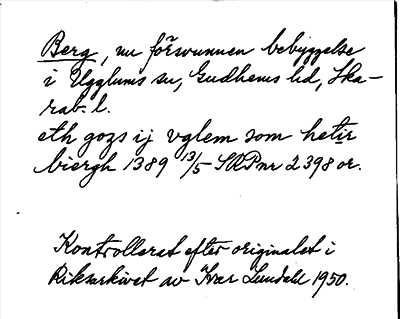 Berg, nu försvunnen bebyggelse
i Ugglums sn, Gudhems hd, Ska-
rab. l.
eth gozs ij vglem som hetir
biergh 1389 13/5 SRP nr 2398 or.
Kontrollerat efter originalet i
Riksarkivet av Ivar Lundahl 1950.